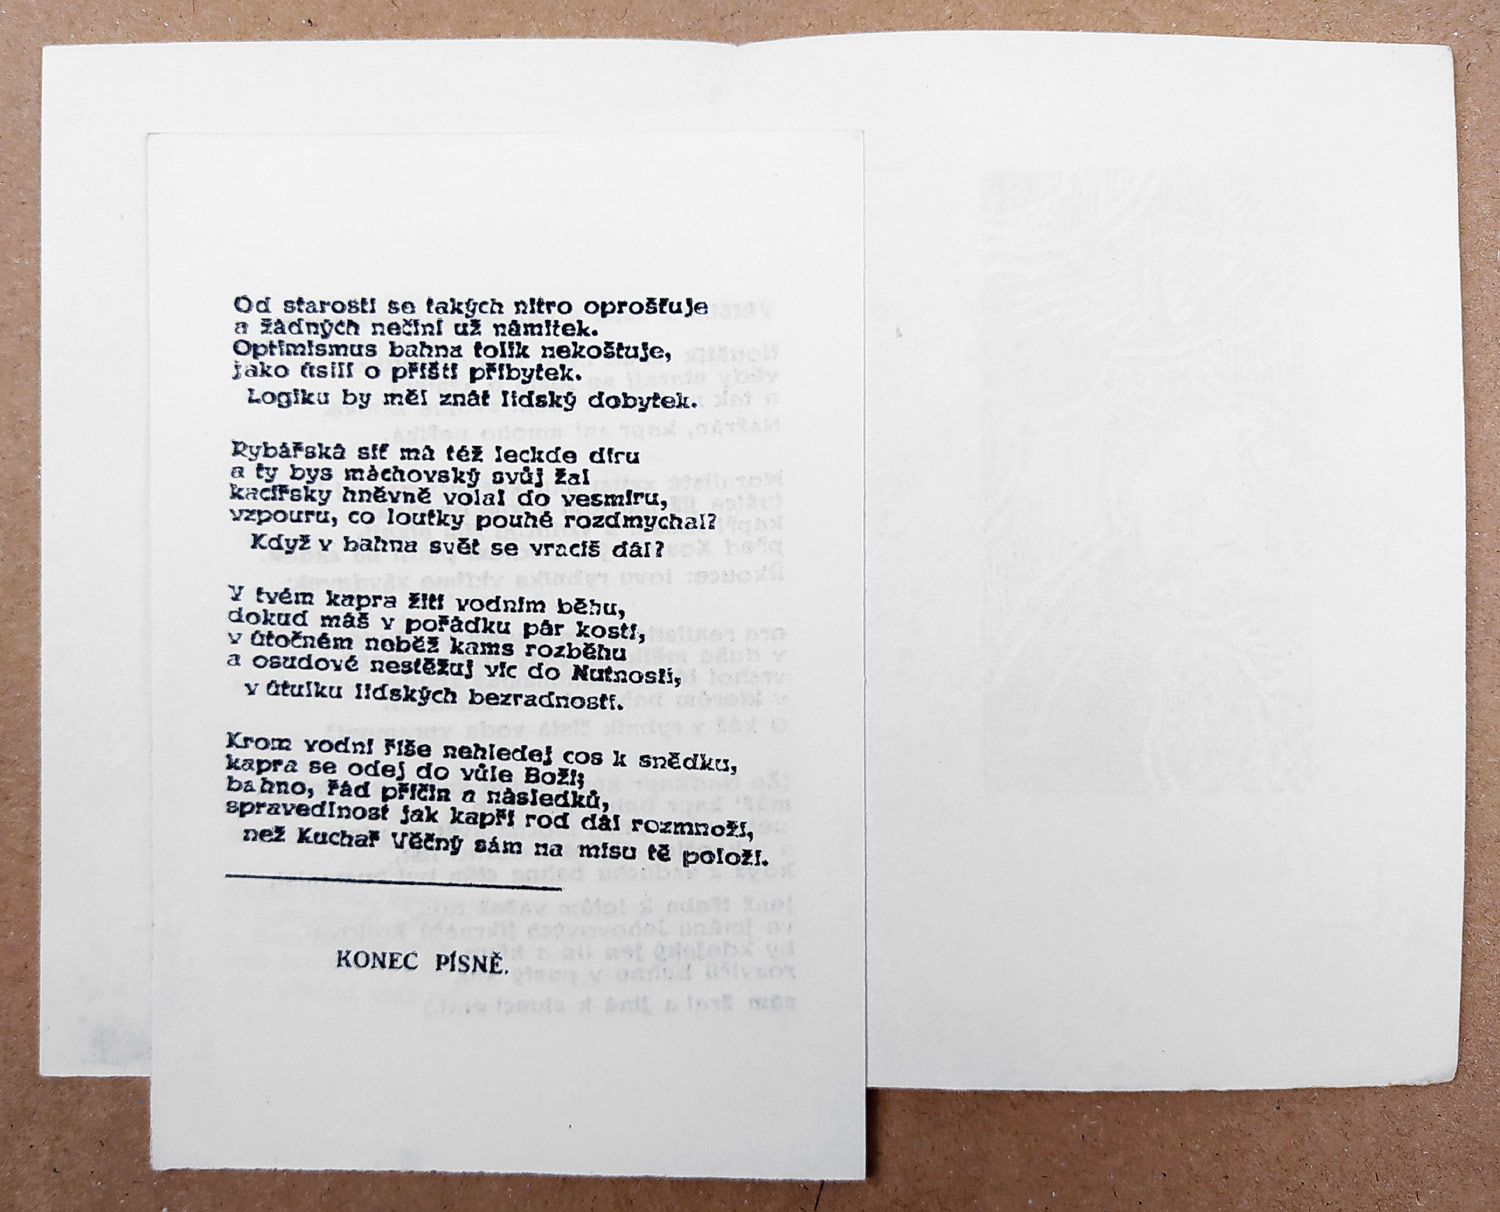 Od starostí se takých nitro oprošťuje
a žádných nečiní už námitek.
Optimismus bahna tolik nekoštuje,
jako úsilí o příští příbytek.
Logiku by měl znát lidský dobytek.
Rybářská síť má též leckde díru
a ty bys máchovský svůj žal
kacířsky hněvně volal do vesmíru,
vzpouru, co loutky pouhé rozdmychal?
Když v bahna svět se vracíš dál?
V tvém kapra žití vodním běhu,
dokud máš v pořádku pár kostí,
v útočném neběž kams rozběhu
a osudově nestěžuj víc do Nutnosti,
v útulku lidských bezradností.
Krom vodní říše nehledej cos k snědku,
kapra se odej do vůle Boží;
bahno, řád příčin a následků,
spravedlnost jak kapří rod dál rozmnoží,
než Kuchař Věčný sám na mísu tě položí.
KONEC PÍSNĚ.